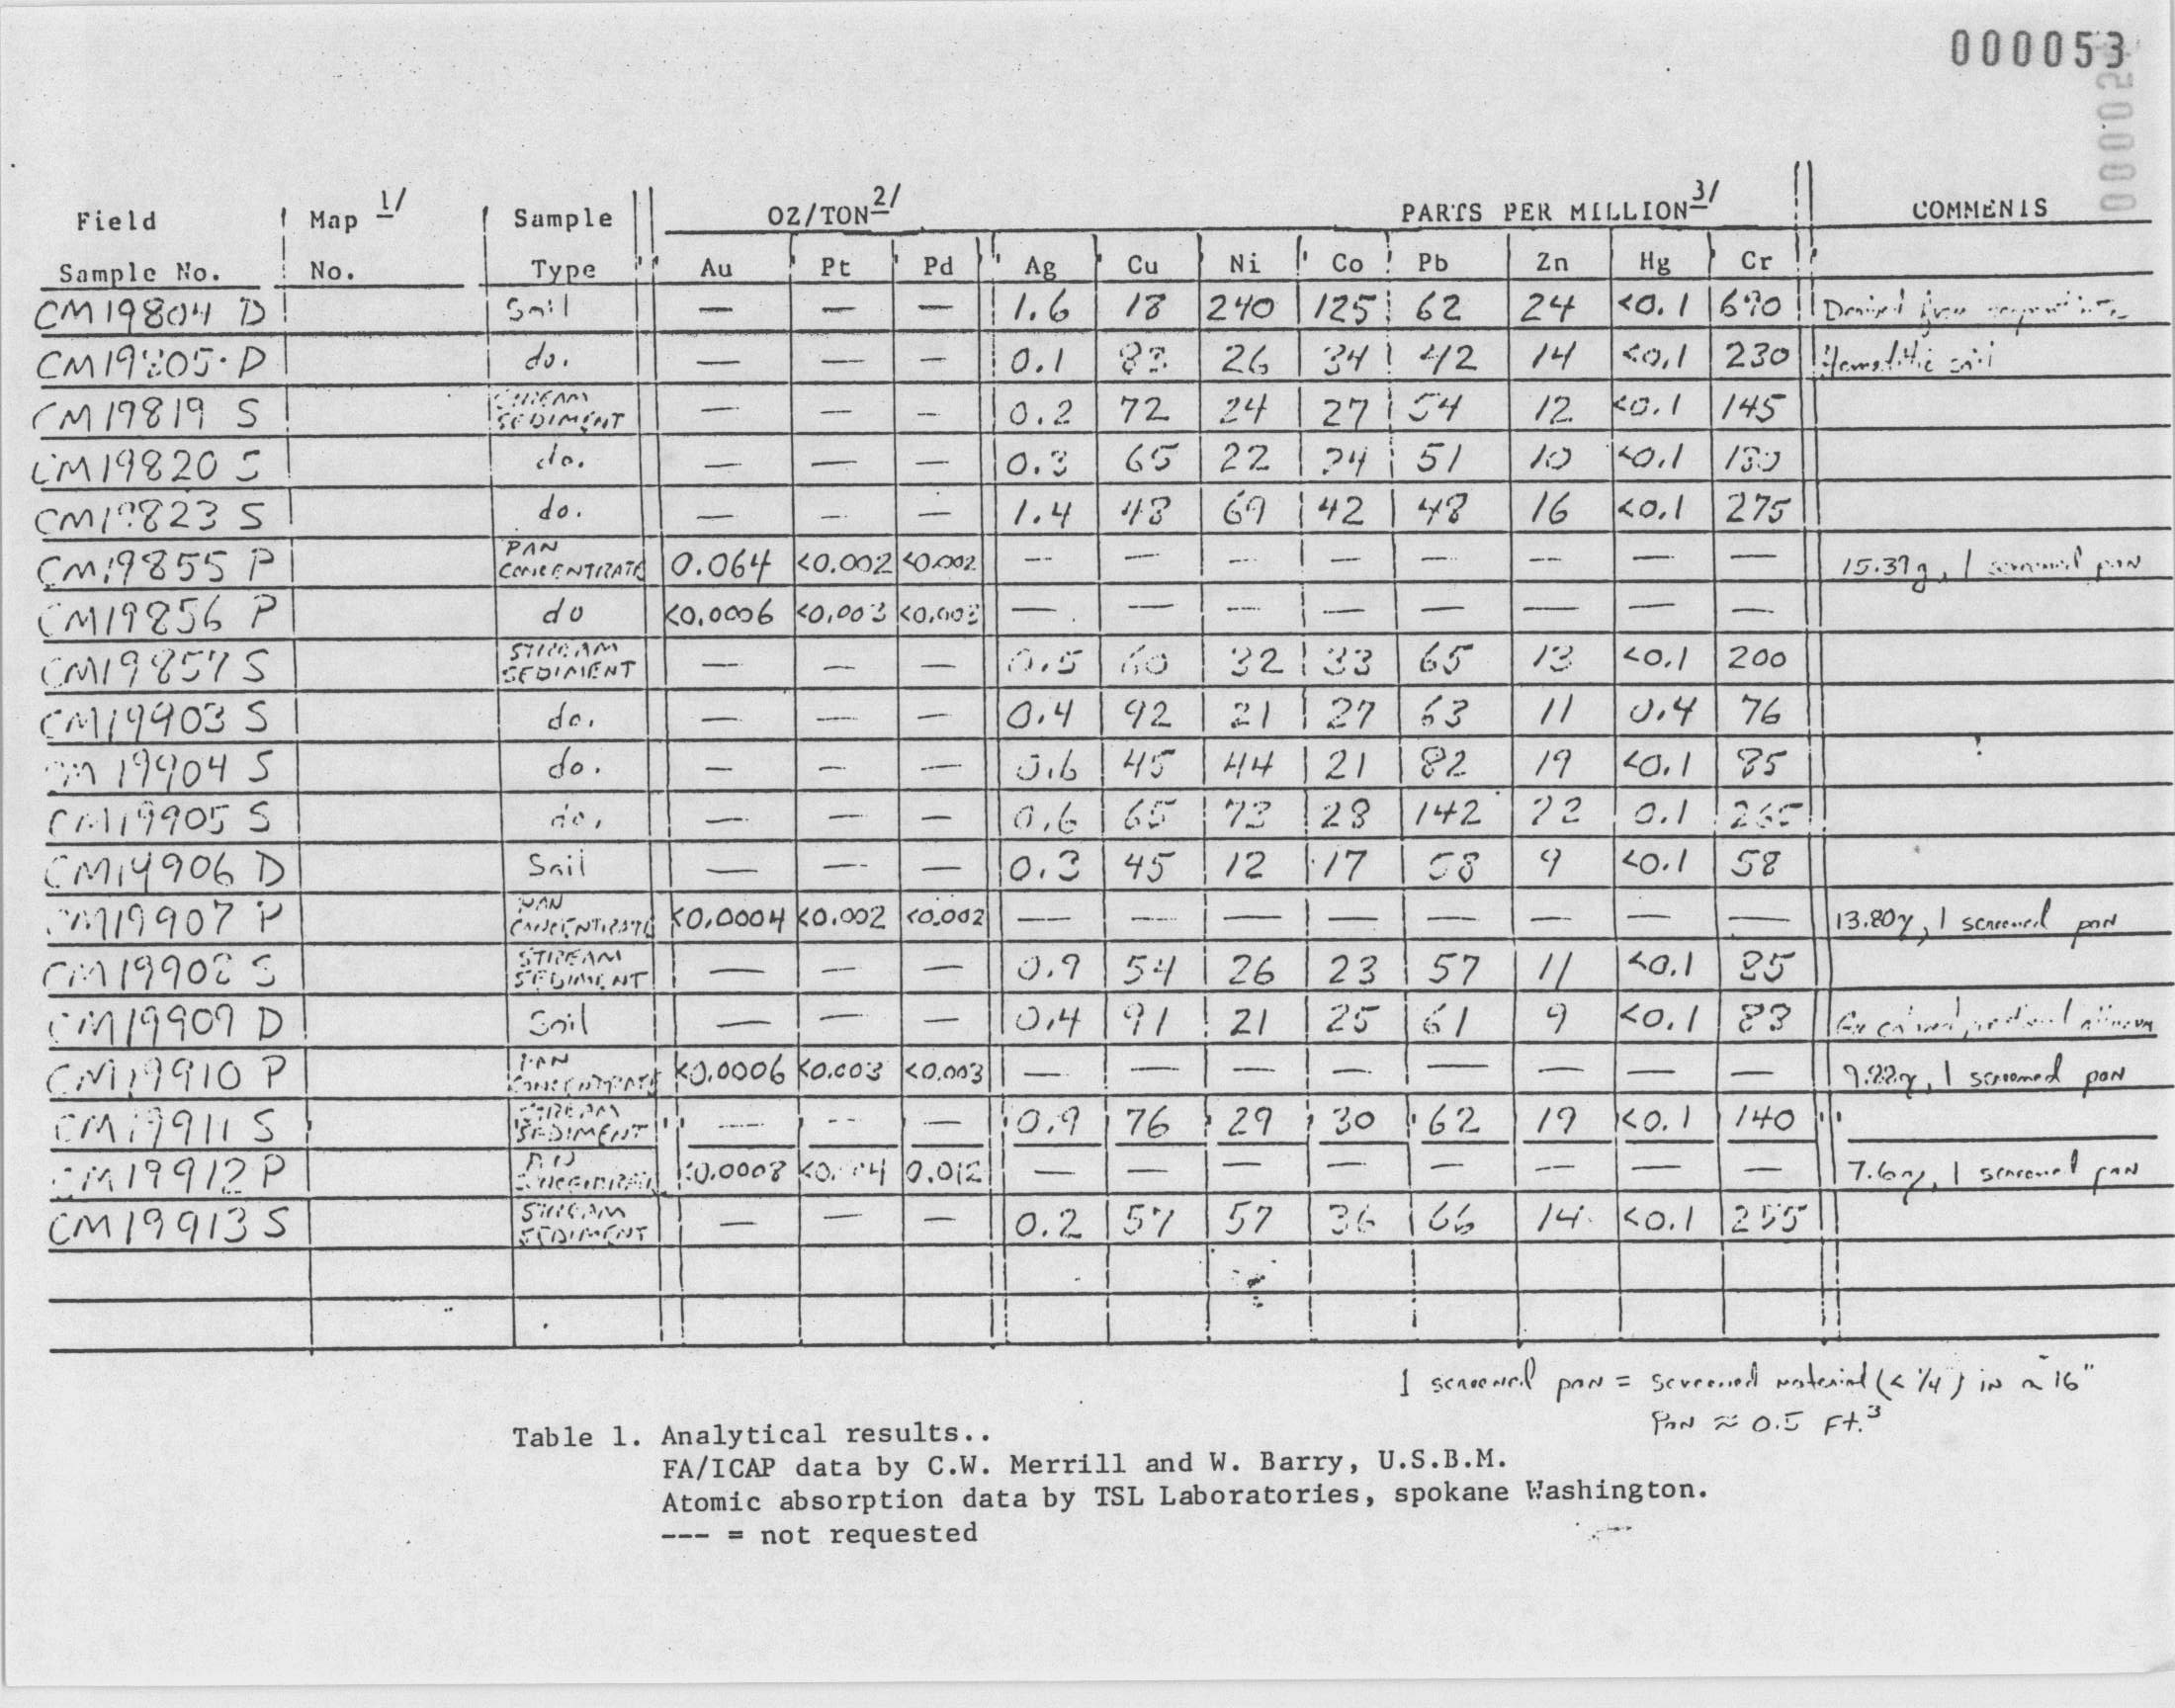 000053
Field Map 1/ Sample OZ/TON 2/ PARTS PER MILLION 3/ COMMENTS
Sample No. No. Type Au Pt Pd Ag Cu Ni Co Pb Zn Hg Cr
CM19804 D Soil — — — 1.6 18 240 125 62 24 <0.1 690 Derived from
CM19805 D do. — — — 0.1 83 26 34 42 14 <0.1 230 Hematitic soil
CM19819 S STREAM SEDIMENT — — — 0.2 72 24 27 54 12 <0.1 145
CM19820 S do. — — — 0.3 65 22 24 51 10 <0.1 130
CM19823 S do. — — — 1.4 48 69 42 48 16 <0.1 275
CM19855 P PAN CONCENTRATE 0.064 <0.002 <0.002 — — — — — — — — 15.37g, 1 screened pan
CM19856 P do <0.0006 <0.003 <0.003 — — — — — — — —
CM19857 S STREAM SEDIMENT — — — 0.5 60 32 33 65 13 <0.1 200
CM19903 S do. — — — 0.4 92 21 27 63 11 0.4 76
CM19904 S do. — — — 0.6 45 44 21 82 19 <0.1 85
CM19905 S do. — — — 0.6 65 73 28 142 22 0.1 265
CM19906 D Soil — — — 0.3 45 12 17 58 9 <0.1 58
CM19907 P PAN CONCENTRATE <0.0004 <0.002 <0.002 — — — — — — — — 13.80g, 1 screened pan
CM19908 S STREAM SEDIMENT — — — 0.9 54 26 23 57 11 <0.1 85
CM19909 D Soil — — — 0.4 91 21 25 61 9 <0.1 83
CM19910 P PAN CONCENTRATE <0.0006 <0.003 <0.003 — — — — — — — — 9.22g, 1 screened pan
CM19911 S STREAM SEDIMENT — — — 0.9 76 29 30 62 19 <0.1 140
CM19912 P PAN CONCENTRATE <0.0008 <0.004 0.012 — — — — — — — — 1 screened pan
CM19913 S STREAM SEDIMENT — — — 0.2 57 57 36 66 14 <0.1 255
1 screened pan = screened material (< 1/4) in a 16"
Pan ≈ 0.5 Ft.3
Table 1. Analytical results..
FA/ICAP data by C.W. Merrill and W. Barry, U.S.B.M.
Atomic absorption data by TSL Laboratories, spokane Washington.
--- = not requested